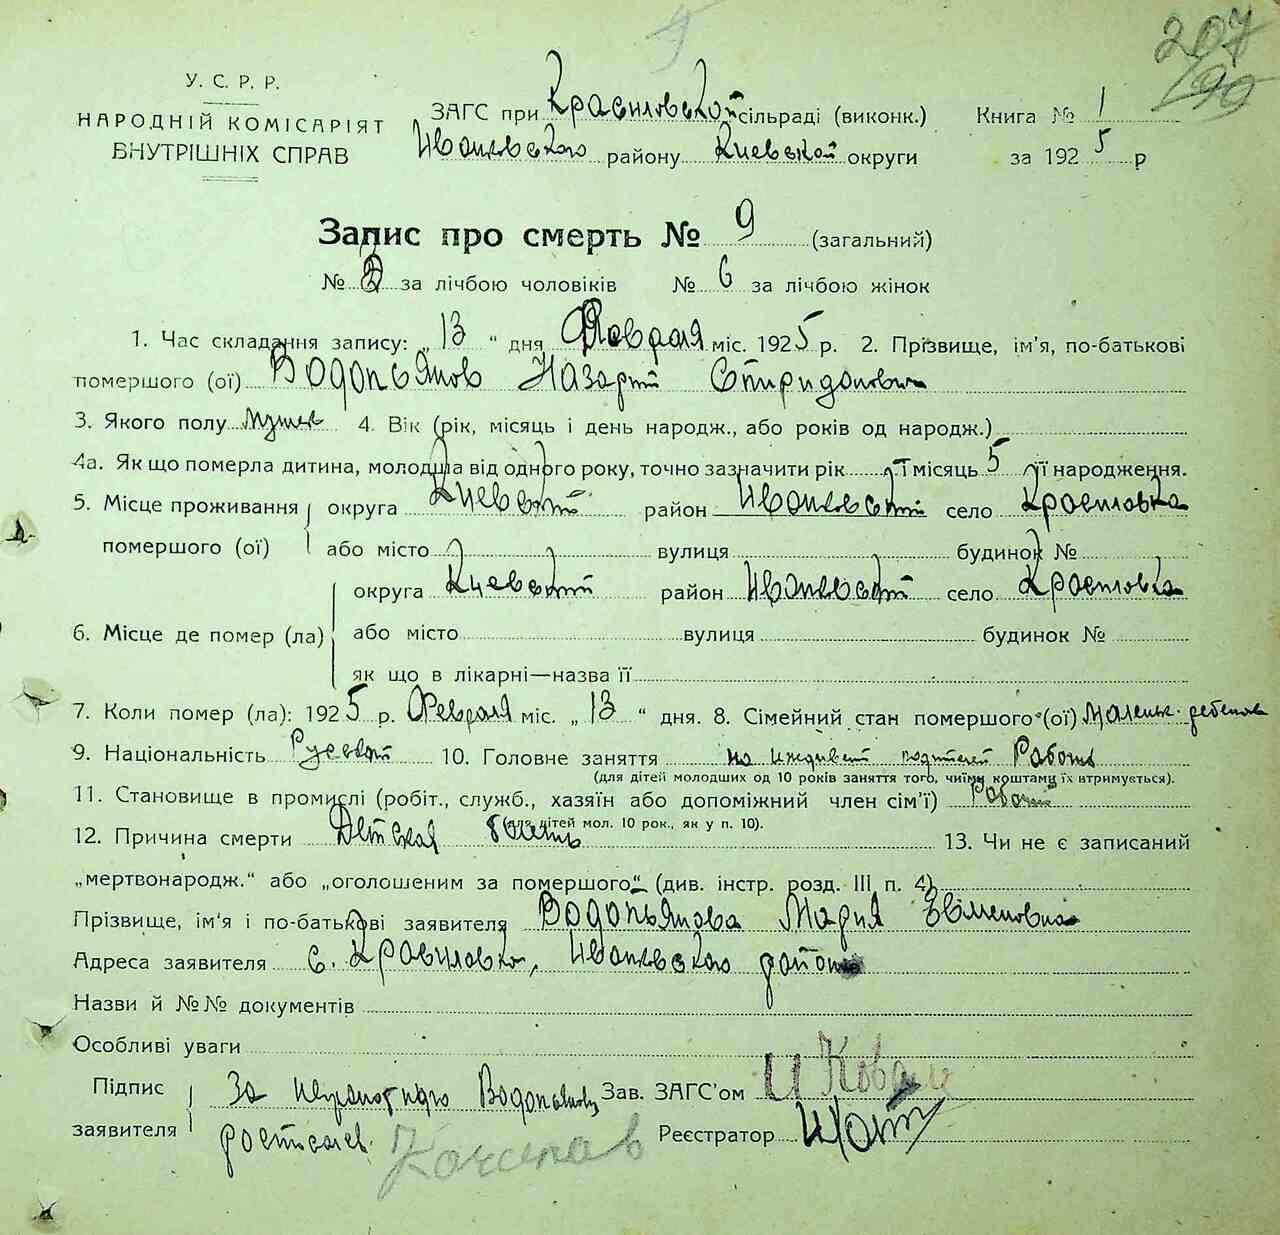 207
190
У. С. Р. Р.
НАРОДНІЙ КОМІСАРІЯТ
ВНУТРІШНІХ СПРАВ
ЗАГС при Красиловской сільраді (виконк.)
Иванковского району Киевской округи
Книга № 1
за 1925 р
Запис про смерть № 9 (загальний)
№ за лічбою чоловіків № 6 за лічбою жінок
1. Час складання запису: „13“ дня Февраля міс. 1925 р. 2. Прізвище, ім'я, по-батькові
помершого (ої) Водопьянов Назарий Спиридонович
3. Якого полу Мужск 4. Вік (рік, місяць і день народж., або років од народж.)
4а. Як що померла дитина, молодша від одного року, точно зазначити рік і місяць 5 її народження.
5. Місце проживання помершого (ої) округа Киевской район Иванковский село Красиловка
або місто вулиця будинок №
6. Місце де помер (ла) округа Киевский район Иванковский село Красиловка
або місто вулиця будинок №
як що в лікарні—назва її
7. Коли помер (ла): 1925 р. Февраля міс. „13“ дня. 8. Сімейний стан помершого (ої) Маленьк. ребенок
9. Національність Русской 10. Головне заняття на иждивен родителей
(для дітей молодших од 10 років заняття того, чиїми коштами їх втримується).
11. Становище в промислі (робіт., служб., хазяїн або допоміжний член сім'ї) Рабочий
(для дітей мол. 10 рок., як у п. 10).
12. Причина смерти Детская болезнь 13. Чи не є записаний
„мертвонародж.“ або „оголошеним за помершого“ (див. інстр. розд. III п. 4)
Прізвище, ім'я і по-батькові заявителя Водопьянова Мария Евменовна
Адреса заявителя с. Красиловка, Иванковского района
Назви й №№ документів
Особливі уваги
Підпис заявителя За неграмотную Водопьянову
Зав. ЗАГС'ом И Коваль
Реєстратор